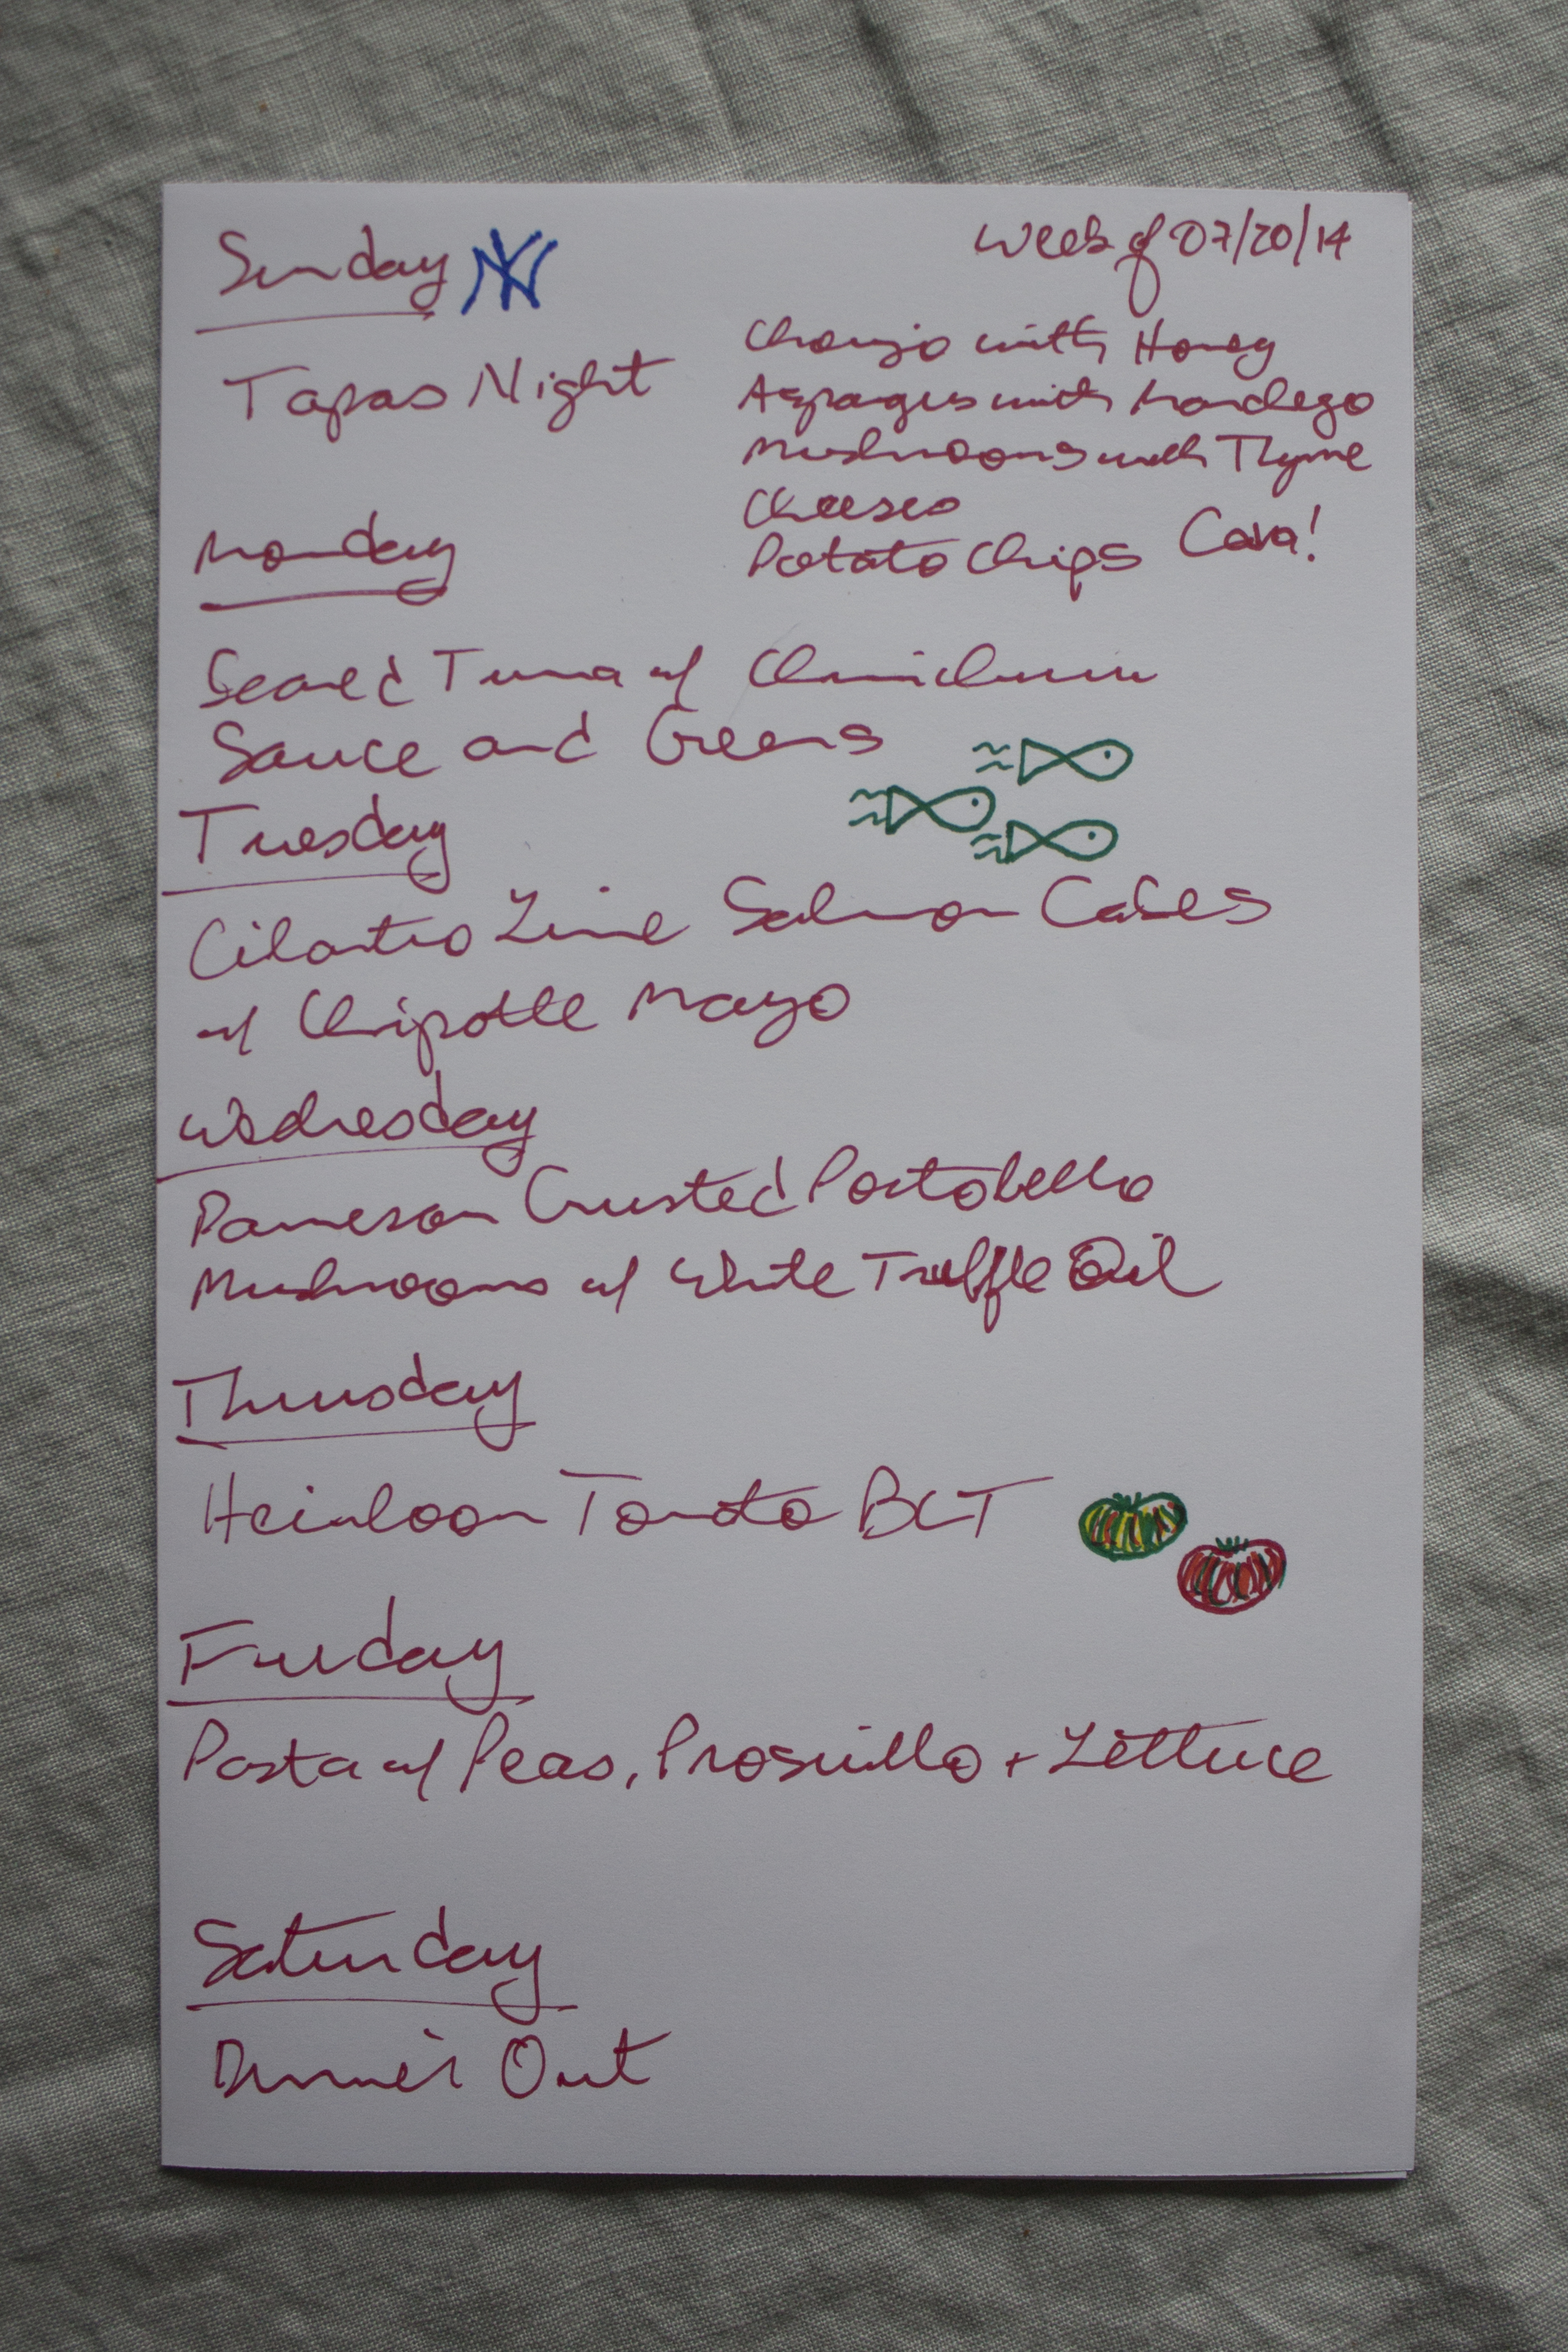 Sunday NY
Week of 07/20/14
Tapas Night
Chorizo with Honey
Asparagus with Mandego
Mushrooms with Thyme
Cheeses
Potato Chips Cava!
Monday
Seared Tuna w/ Chimichurri
Sauce and Greens
Tuesday
Cilantro Lime Salmon Cakes
w/ Chipotle Mayo
Wednesday
Parmesan Crusted Portobello
Mushrooms w/ White Truffle Oil
Thursday
Heirloom Tomato BLT
Friday
Pasta w/ Peas, Prosciutto + Lettuce
Saturday
Dinner Out